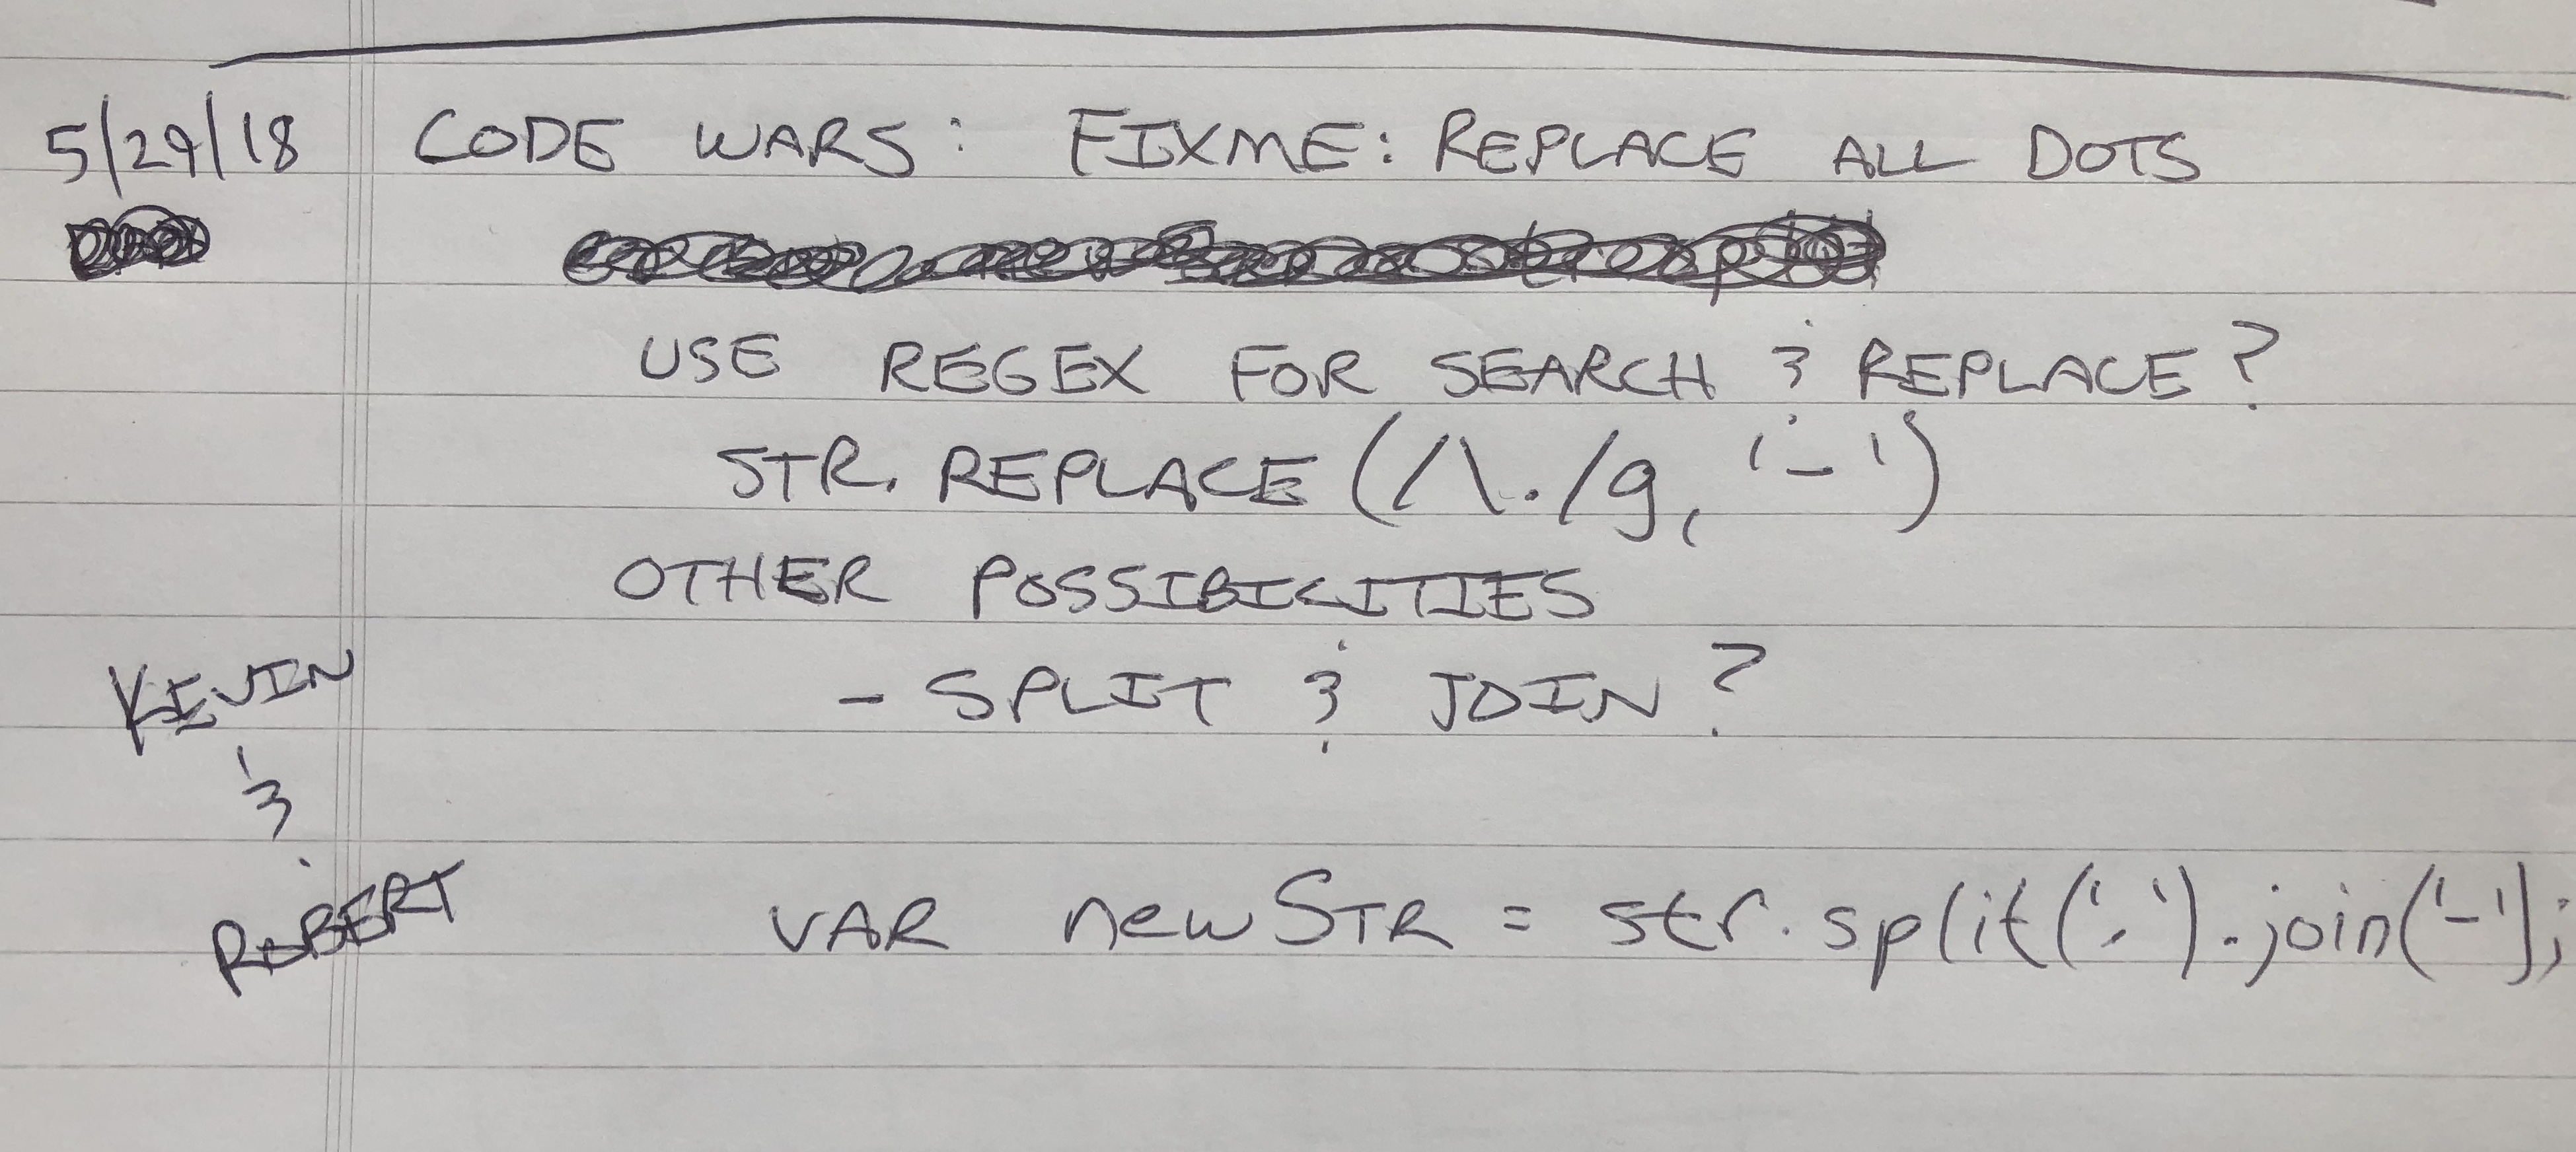 5/29/18 CODE WARS: FIXME: REPLACE ALL DOTS
USE REGEX FOR SEARCH & REPLACE?
STR. REPLACE(/\./g, '-')
OTHER POSSIBILITIES
- SPLIT & JOIN?
KEVIN
&
ROBERT
VAR newSTR = str.split('.').join('-');